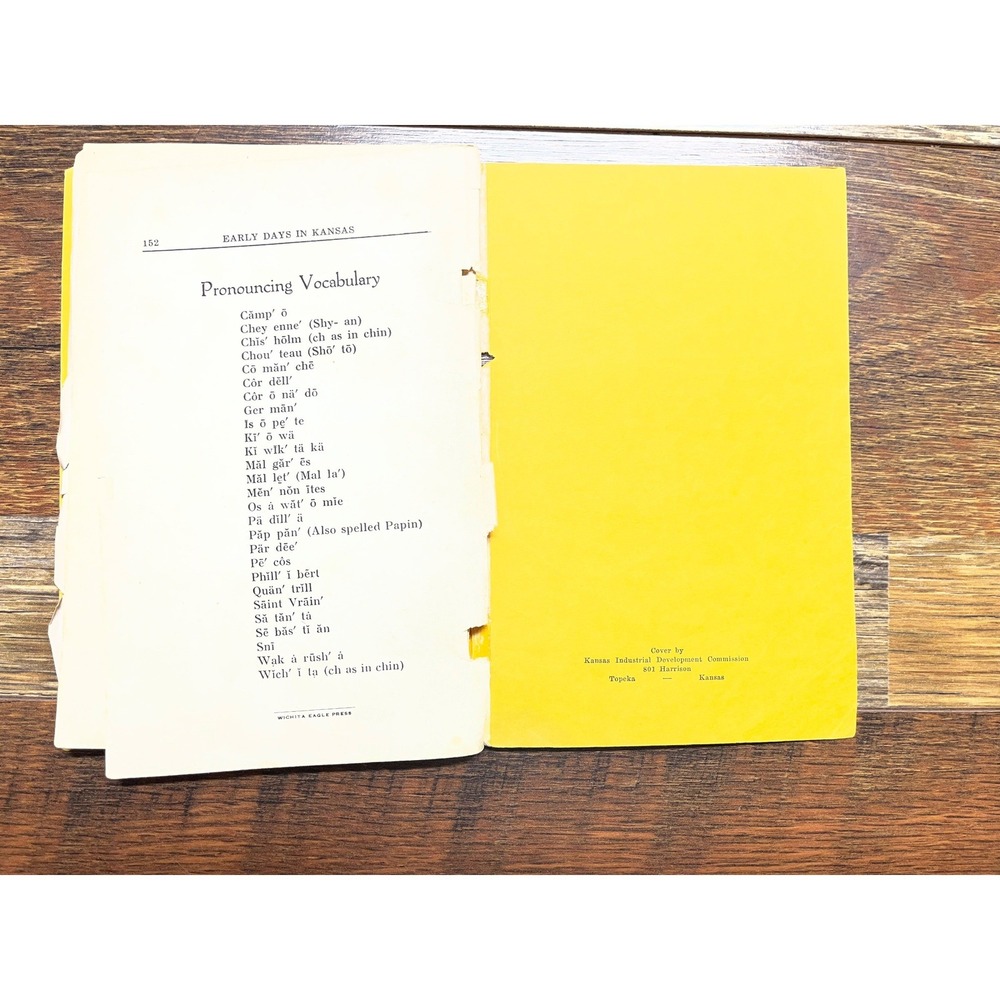 152 EARLY DAYS IN KANSAS
Pronouncing Vocabulary
Cămp′ ō
Chey enne′ (Shy- an)
Chĭs′ hōlm (ch as in chin)
Chou′ teau (Shō′ tō)
Cō măn′ chē
Côr dĕll′
Côr ō nä′ dō
Ger măn′
Is ō pe̱′ te
Kī′ ō wä
Kĭ wĭk′ tä kä
Măl găr′ ēs
Măl le̱t′ (Mal la′)
Mĕn′ nŏn ītes
Os ȧ wăt′ ō mĭe
Pä dĭll′ ä
Păp păn′ (Also spelled Papin)
Pär dēe′
Pē′ côs
Phĭll′ ĭ bērt
Quăn′ trĭll
Sāint Vrāin′
Să tăn′ tȧ
Sē băs′ tĭ ăn
Snī
Wạk ȧ rŭsh′ ȧ
Wich′ ĭ tạ (ch as in chin)
WICHITA EAGLE PRESS
Cover by
Kansas Industrial Development Commission
801 Harrison
Topeka — Kansas